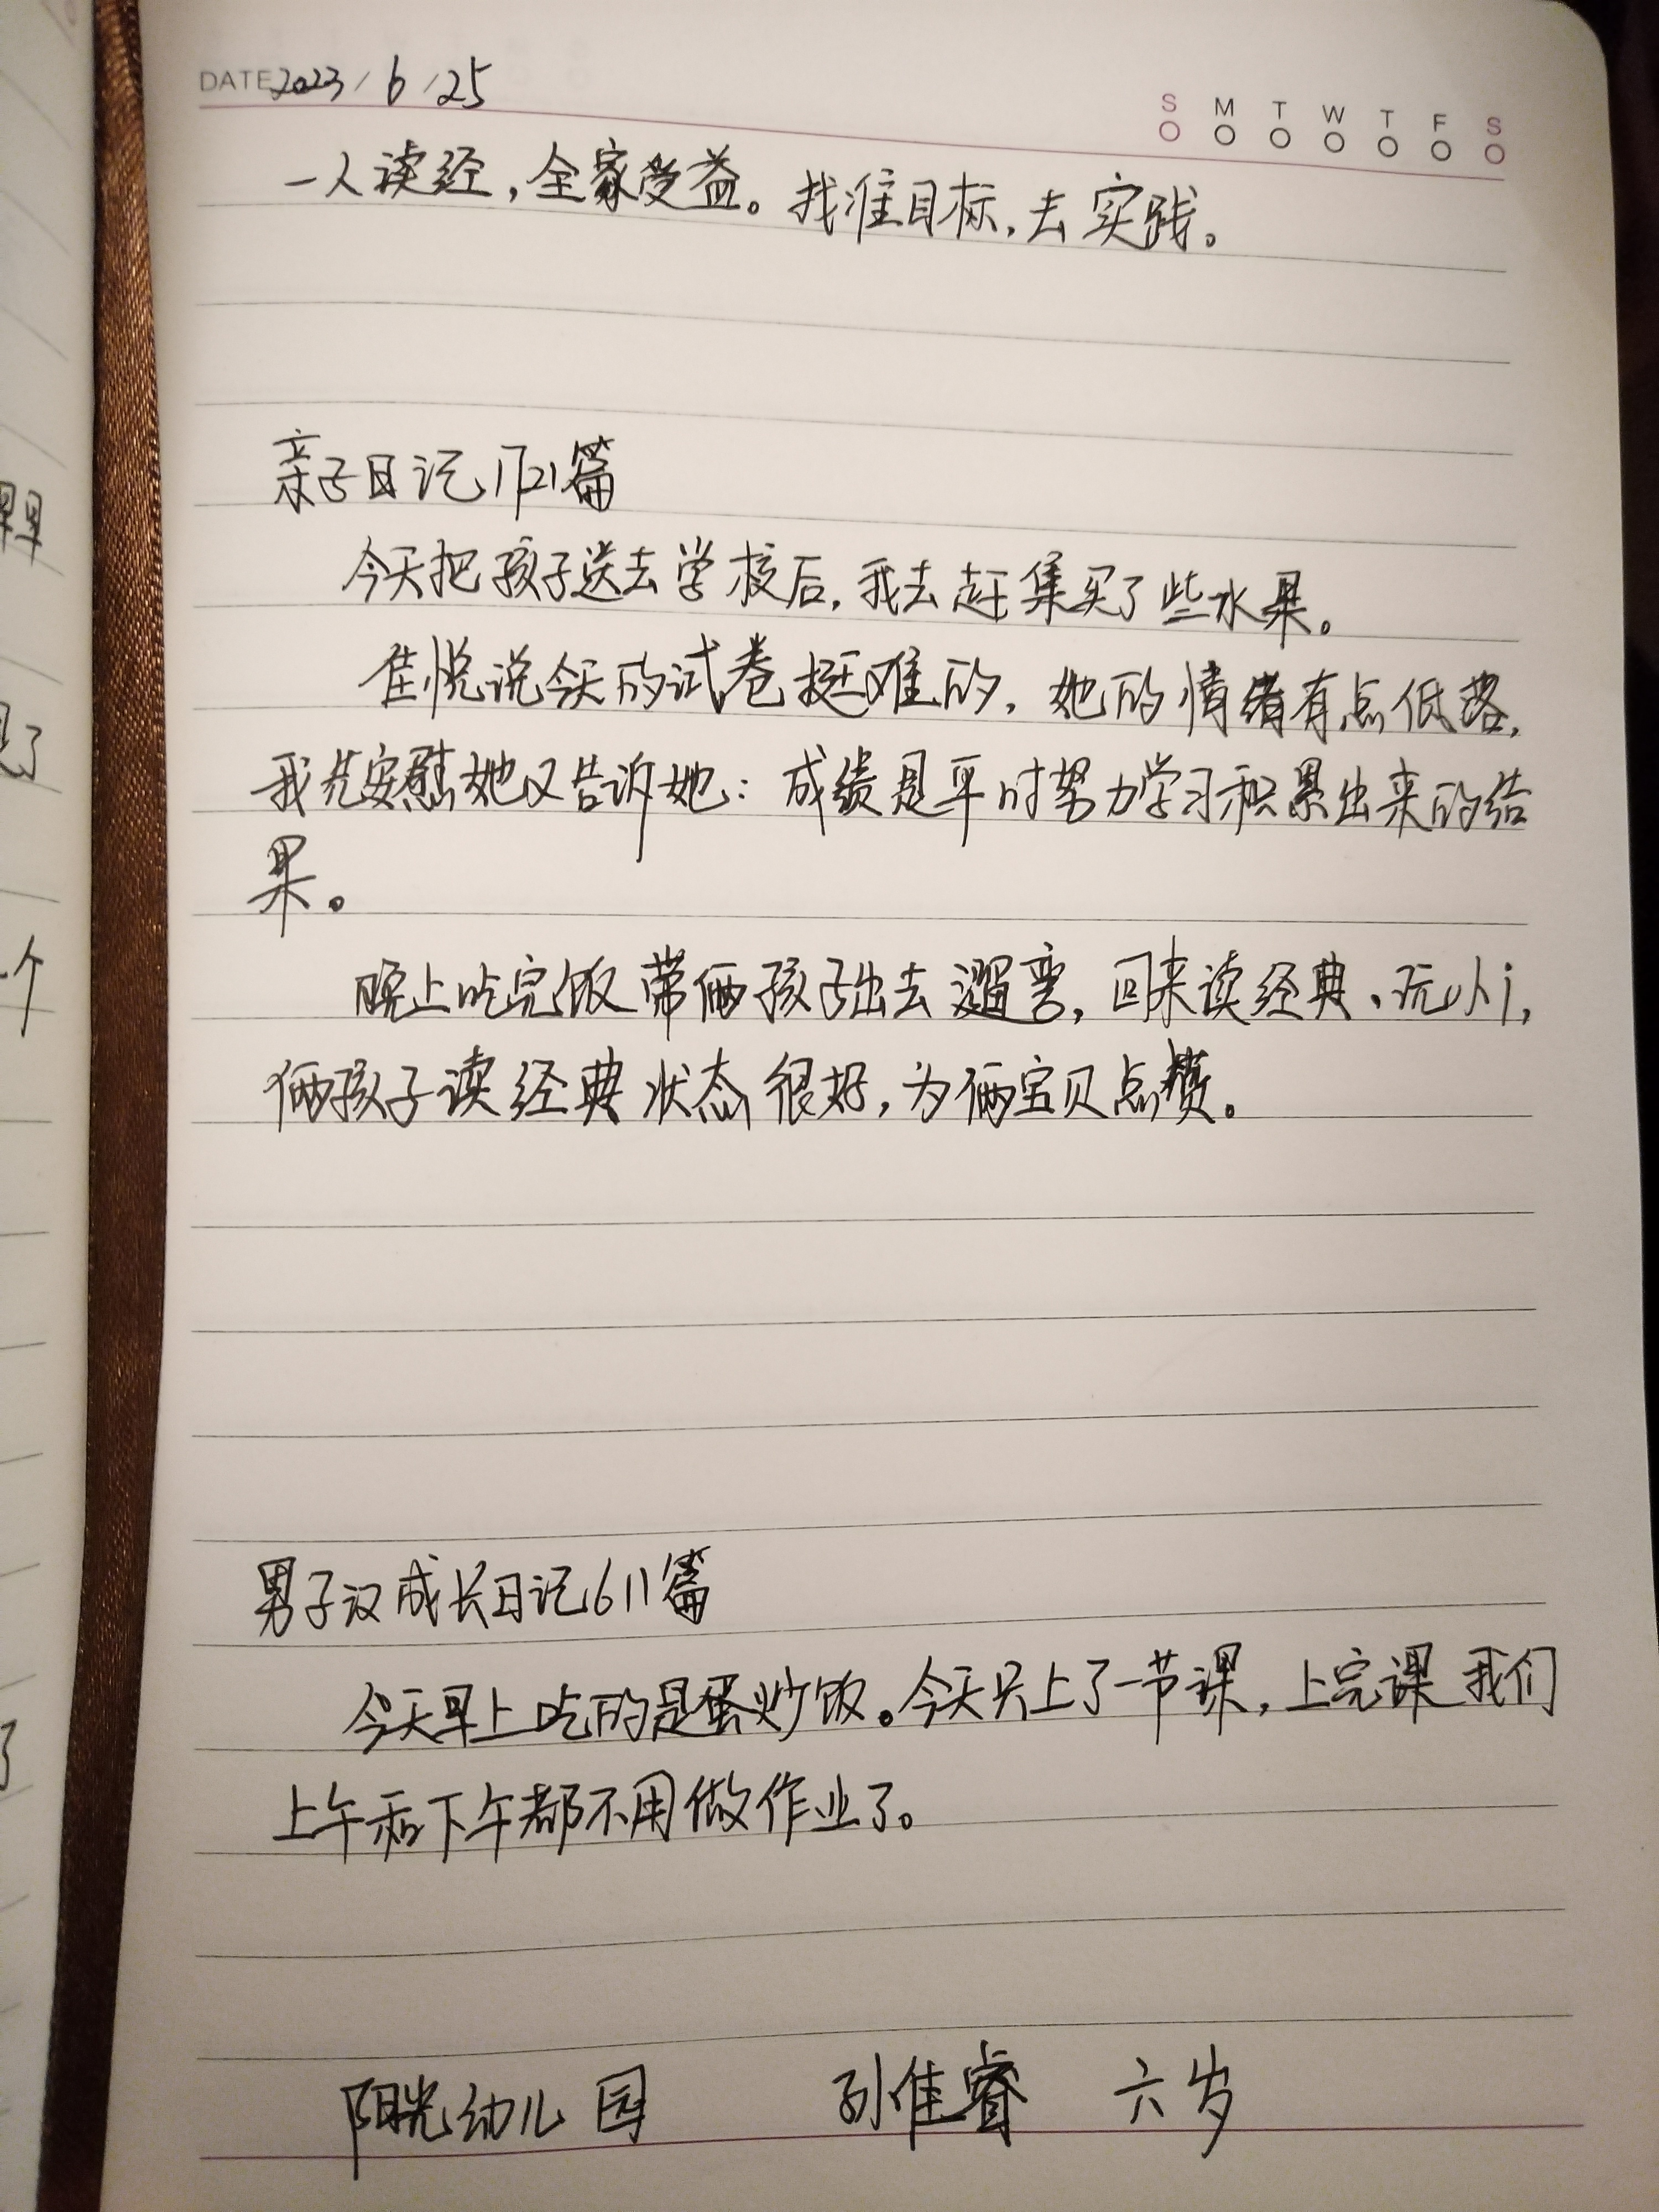 DATE 2023/6/25
S M T W T F S
一人读经，全家受益。找准目标，去实践。
亲子日记1721篇
今天把孩子送去学校后，我去赶集买了些水果。
佳悦说今天的试卷挺难的，她的情绪有点低落，
我先安慰她又告诉她：成绩是平时努力学习积累出来的结
果。
晚上吃完饭带俩孩子出去遛弯，回来读经典、玩小j，
俩孩子读经典状态很好，为俩宝贝点赞。
男子汉成长日记611篇
今天早上吃的是蛋炒饭。今天只上了一节课，上完课我们
上午和下午都不用做作业了。
阳光幼儿园 孙佳睿 六岁
早
是了
一个
了